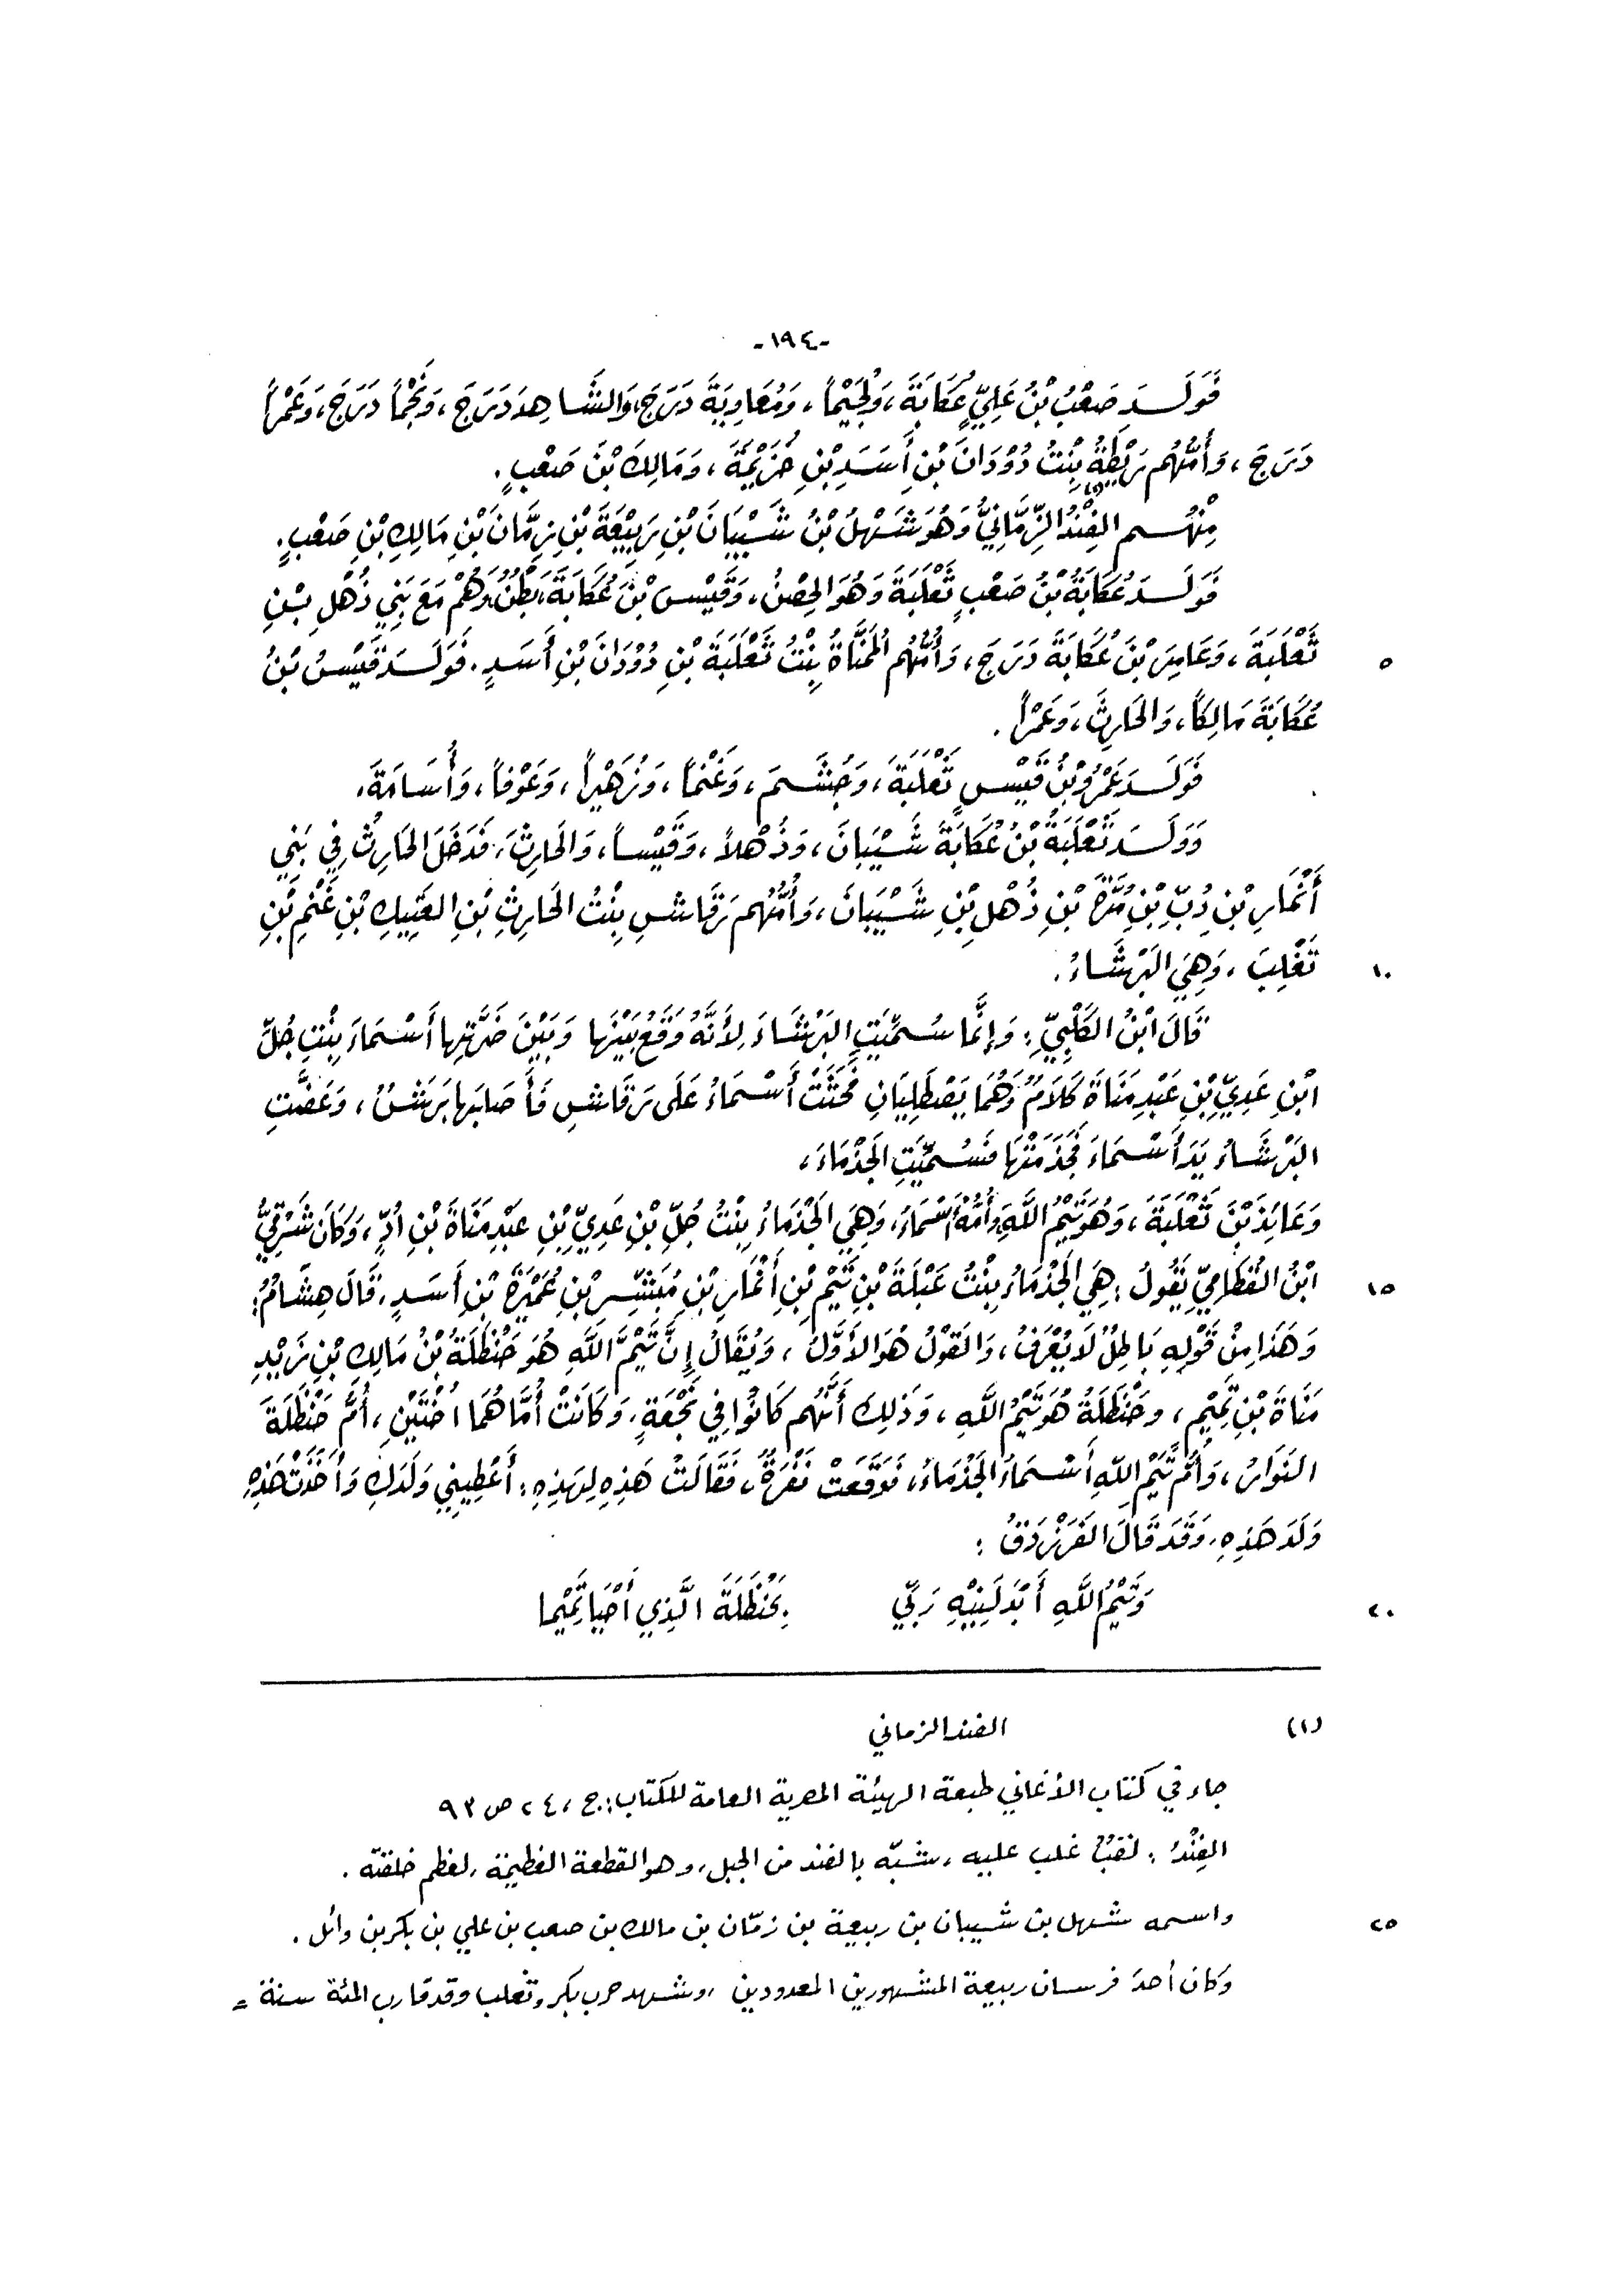 -١٩٤-
فَوَلَدَ صَعْبُ بْنُ عَلِيٍّ عُكَابَةَ، وَلُجَيْمًا، وَمُعَاوِيَةَ دَرَجَ، وَالشَّاهِدَ دَرَجَ، وَنَجْمًا دَرَجَ، وَعَمْرًا
دَرَجَ، وَأُمُّهُم رَيْطَةُ بِنْتُ دُوْدَانَ بْنِ أَسَدِ بْنِ خُزَيْمَةَ، وَمَالِكَ بْنَ صَعْبٍ.
مِنْهُم الفِنْدُ(١) الزِّمَّانِيُّ وَهُوَ شَهْلُ بْنُ شَيْبَانَ بْنِ رَبِيْعَةَ بْنِ زِمَّانَ بْنِ مَالِكِ بْنِ صَعْبٍ.
فَوَلَدَ عُكَابَةُ بْنُ صَعْبٍ ثَعْلَبَةَ وَهُوَ الحِصْنُ، وَقَيْسَ بْنَ عُكَابَةَ، بَطْنٌ، وَهُمْ مَعَ بَنِي ذُهْلِ بْنِ
٥ ثَعْلَبَةَ، وَعَامِرَ بْنَ عُكَابَةَ دَرَجَ، وَأُمُّهُم المُمَنَّاةُ بِنْتُ ثَعْلَبَةَ بْنِ دُوْدَانَ بْنِ أَسَدٍ. فَوَلَدَ قَيْسُ بْنُ
عُكَابَةَ مَالِكًا، وَالحَارِثَ، وَعَمْرًا.
فَوَلَدَ عَمْرُو بْنُ قَيْسٍ ثَعْلَبَةَ، وَجُشَمَ، وَغَنْمًا، وَزُهَيْرًا، وَعَوْفًا، وَأُسَامَةَ.
وَوَلَدَ ثَعْلَبَةُ بْنُ عُكَابَةَ شَيْبَانَ، وَذُهْلاً، وَقَيْسًا، وَالحَارِثَ، فَدَخَلَ الحَارِثُ فِي بَنِي
أَنْمَارِ بْنِ دُبِّ بْنِ مُرَّةَ بْنِ ذُهْلِ بْنِ شَيْبَانَ، وَأُمُّهُم رَقَاشِ بِنْتُ الحَارِثِ بْنِ العَتِيكِ بْنِ غَنْمِ بْنِ
١٠ تَغْلِبَ، وَهِيَ البَرْشَاءُ.
قَالَ ابْنُ الكَلْبِيِّ: وَإِنَّمَا سُمِّيَتِ البَرْشَاءَ لِأَنَّهُ وَقَعَ بَيْنَهَا وَبَيْنَ ضَرَّتِهَا أَسْمَاءَ بِنْتِ جُلِّ
ابْنِ عَدِيِّ بْنِ عَبْدِ مَنَاةَ كَلَامٌ وَهُمَا يَصْطَلِيَانِ فَحَثَتْ أَسْمَاءُ عَلَى رَقَاشِ فَأَصَابَهَا بَرَشٌ، وَعَضَّتِ
البَرْشَاءُ يَدَ أَسْمَاءَ فَجَذَمَتْهَا فَسُمِّيَتِ الجَذْمَاءَ،
وَعَائِذَ بْنَ ثَعْلَبَةَ، وَهُوَ تَيْمُ اللَّهِ، وَأُمُّهُ أَسْمَاءُ، وَهِيَ الجَذْمَاءُ بِنْتُ جُلِّ بْنِ عَدِيِّ بْنِ عَبْدِ مَنَاةَ بْنِ أُدٍّ، وَكَانَ شَرْقِيُّ
١٥ ابْنُ القُطَامِيِّ يَقُولُ: هِيَ الجَذْمَاءُ بِنْتُ عَبْلَةَ بْنِ تَيْمِ بْنِ أَنْمَارِ بْنِ مُبَشِّرِ بْنِ عُمَيْرَةَ بْنِ أَسَدٍ. قَالَ هِشَامٌ:
وَهَذَا مِنْ قَوْلِهِ بَاطِلٌ لَا يُعْرَفُ، وَالقَوْلُ هُوَ الأَوَّلُ، وَيُقَالُ إِنَّ تَيْمَ اللَّهِ هُوَ حَنْظَلَةُ بْنُ مَالِكِ بْنِ زَيْدِ
مَنَاةَ بْنِ تَمِيْمٍ، وحَنْظَلَةُ هُوَ تَيْمُ اللَّهِ، وَذَلِكَ أَنَّهُم كَانُوا فِي نُجْعَةٍ، وَكَانَتْ أُمَّاهُمَا أُخْتَيْنِ، أُمُّ حَنْظَلَةَ
النَوَارُ، وَأُمُّ تَيْمِ اللَّهِ أَسْمَاءُ الجَذْمَاءُ، فَوَقَعَتْ نَفْرَةٌ، فَقَالَتْ هَذِهِ لِهَذِهِ: أَعْطِينِي وَلَدَكِ وَأَخَذَتْ هَذِهِ
وَلَدَ هَذِهِ، وَقَدْ قَالَ الفَرَزْدَقُ:
٢٠ وَتَيْمُ اللَّهِ أَبْدَلَنِيْهِ رَبِّي بِحَنْظَلَةَ الَّذِي أَحْيَا تَمِيْمَا
(١) الفند الزماني
جاء في كتاب الأغاني طبعة الهيئة المصرية العامة للكتاب: ج، ٢٤ ص ٩٣
الفِنْدُ: لقبٌ غلب عليه، شبّه بالفند من الجبل، وهو القطعة العظيمة، لعظم خلقته.
٢٥ واسمه شهل بن شيبان بن ربيعة بن زمّان بن مالك بن صعب بن علي بن بكر بن وائل.
وكان أحد فرسان ربيعة المشهورين المعدودين، وشهد حرب بكر وتغلب وقد قارب المئة سنة =